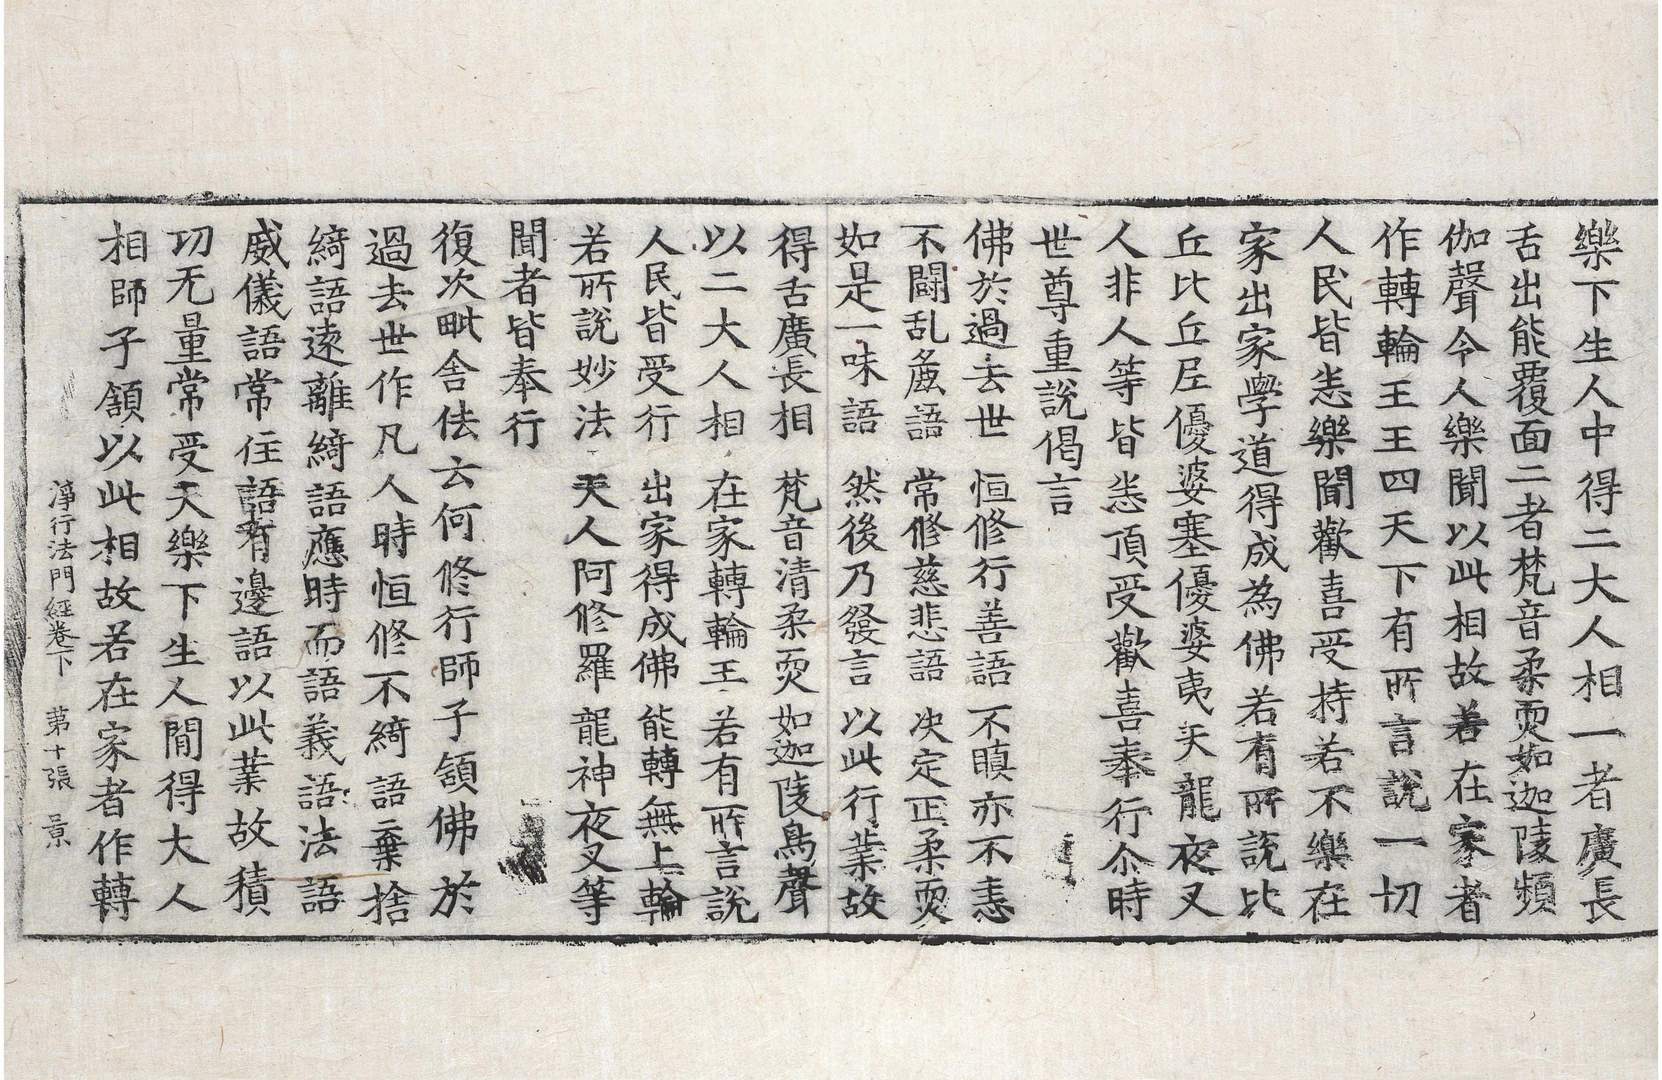 樂下生人中得二大人相一者廣長
舌出能覆面二者梵音柔耎如迦陵頻
伽聲令人樂聞以此相故若在家者
作轉輪王王四天下有所言說一切
人民皆悉樂聞歡喜受持若不樂在
家出家學道得成為佛若有所說比
丘比丘尼優婆塞優婆夷天龍夜叉
人非人等皆悉頂受歡喜奉行尒時
世尊重說偈言
佛於過去世 恒修行善語 不瞋亦不恚
不鬪乱麁語 常修慈悲語 决定正柔耎
如是一味語 然後乃發言 以此行業故
得舌廣長相 梵音清柔耎 如迦陵鳥聲
以二大人相 在家轉輪王 若有所言說
人民皆受行 出家得成佛 能轉無上輪
若所說妙法 天人阿修羅 龍神夜叉等
聞者皆奉行
復次毗舍佉云何修行師子頷佛於
過去世作凡人時恒修不綺語棄捨
綺語遠離綺語應時而語義語法語
威儀語常住語有邊語以此業故積
功无量常受天樂下生人間得大人
相師子頷以此相故若在家者作轉
淨行法門經卷下 第十張 景